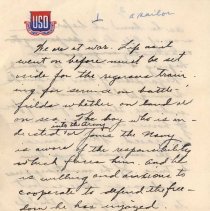 USO
1
a sailor
We are at war. Life as it
went on before must be set
aside for the rigorous train-
ing for service on battle-
fields whether on land or
on sea. The boy who is in-
into the Army
ducted or joins the Navy
is aware of the responsibility
which faces him. And he
is willing and anxious to
cooperate to defend the free-
dom he has enjoyed.